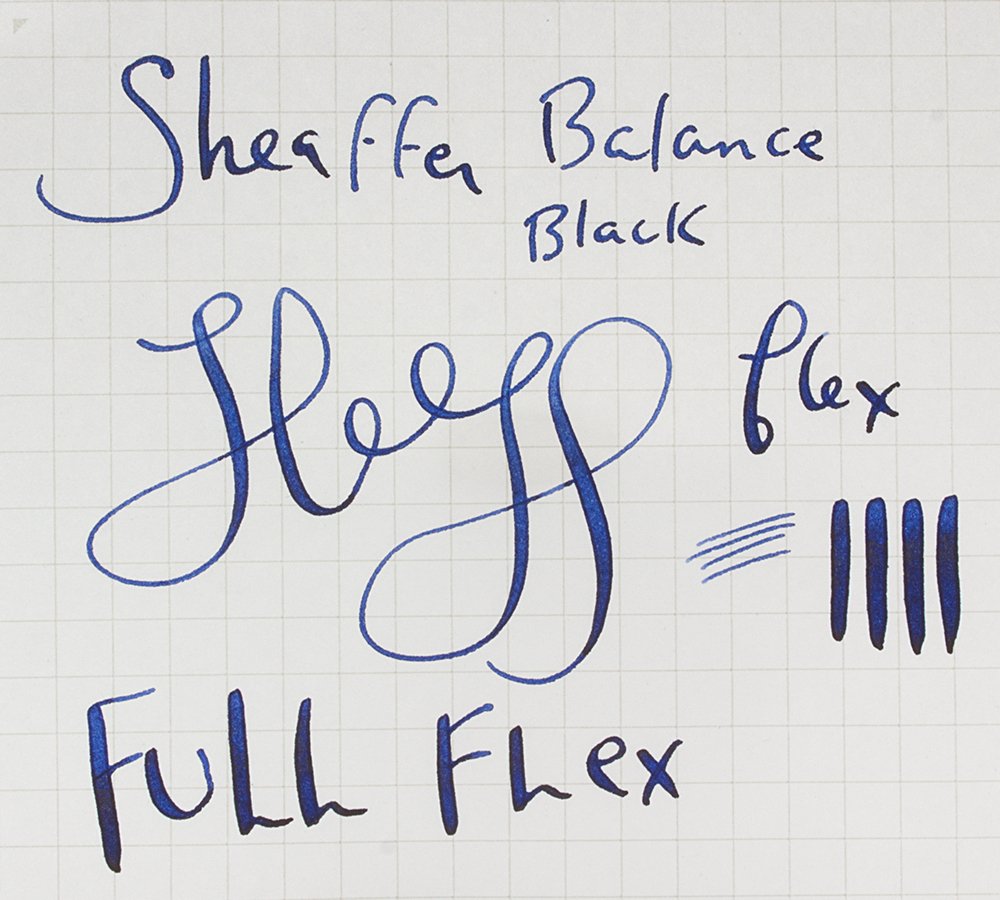 Sheaffer Balance
Black
flex
Full Flex